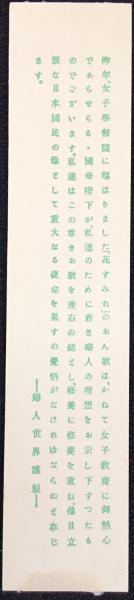 昨年、女子學習院に賜はりました『花すみれ』のおん歌は、かねて女子教育に御熱心
であらせらるゝ國母陛下が、私達のために若き婦人の理想をお示し下すつたも
のでございます。私達はこの尊きお歌を座右の銘とし、修養に修養を重ね、他日立
派な日本國民の母として重大なる使命を果すの覺悟がなければならぬと存じ
ます。
――婦人世界謹製――